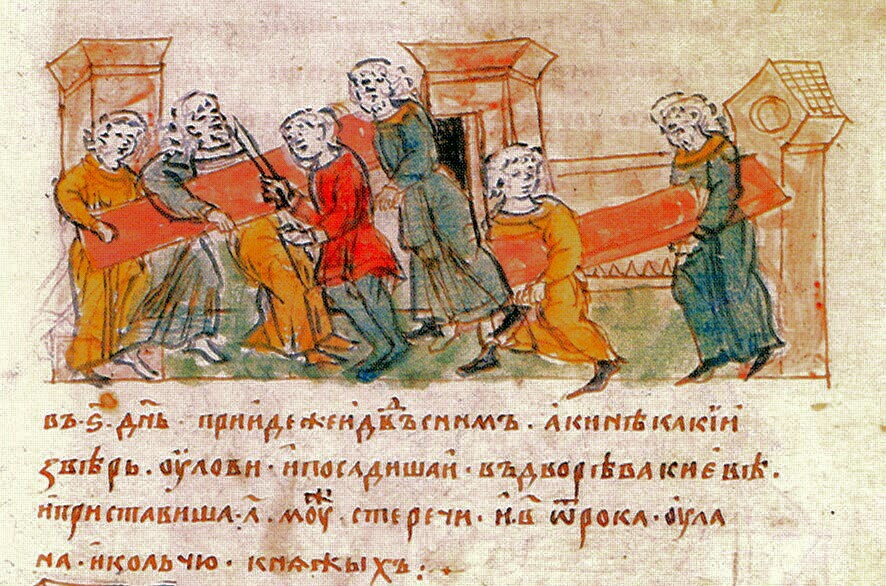 въ·ѕ҃·дн҃ь· прїидежеидв҃дъсинимъ· акинѣкакїи
звѣрь· оуловн· ипосадишаи· въдворѣвакиевѣ·
ипристависша·л҃· моуж стеречи· и·в҃ ѿрока· оула
на· икольчю· княжыхъ:·